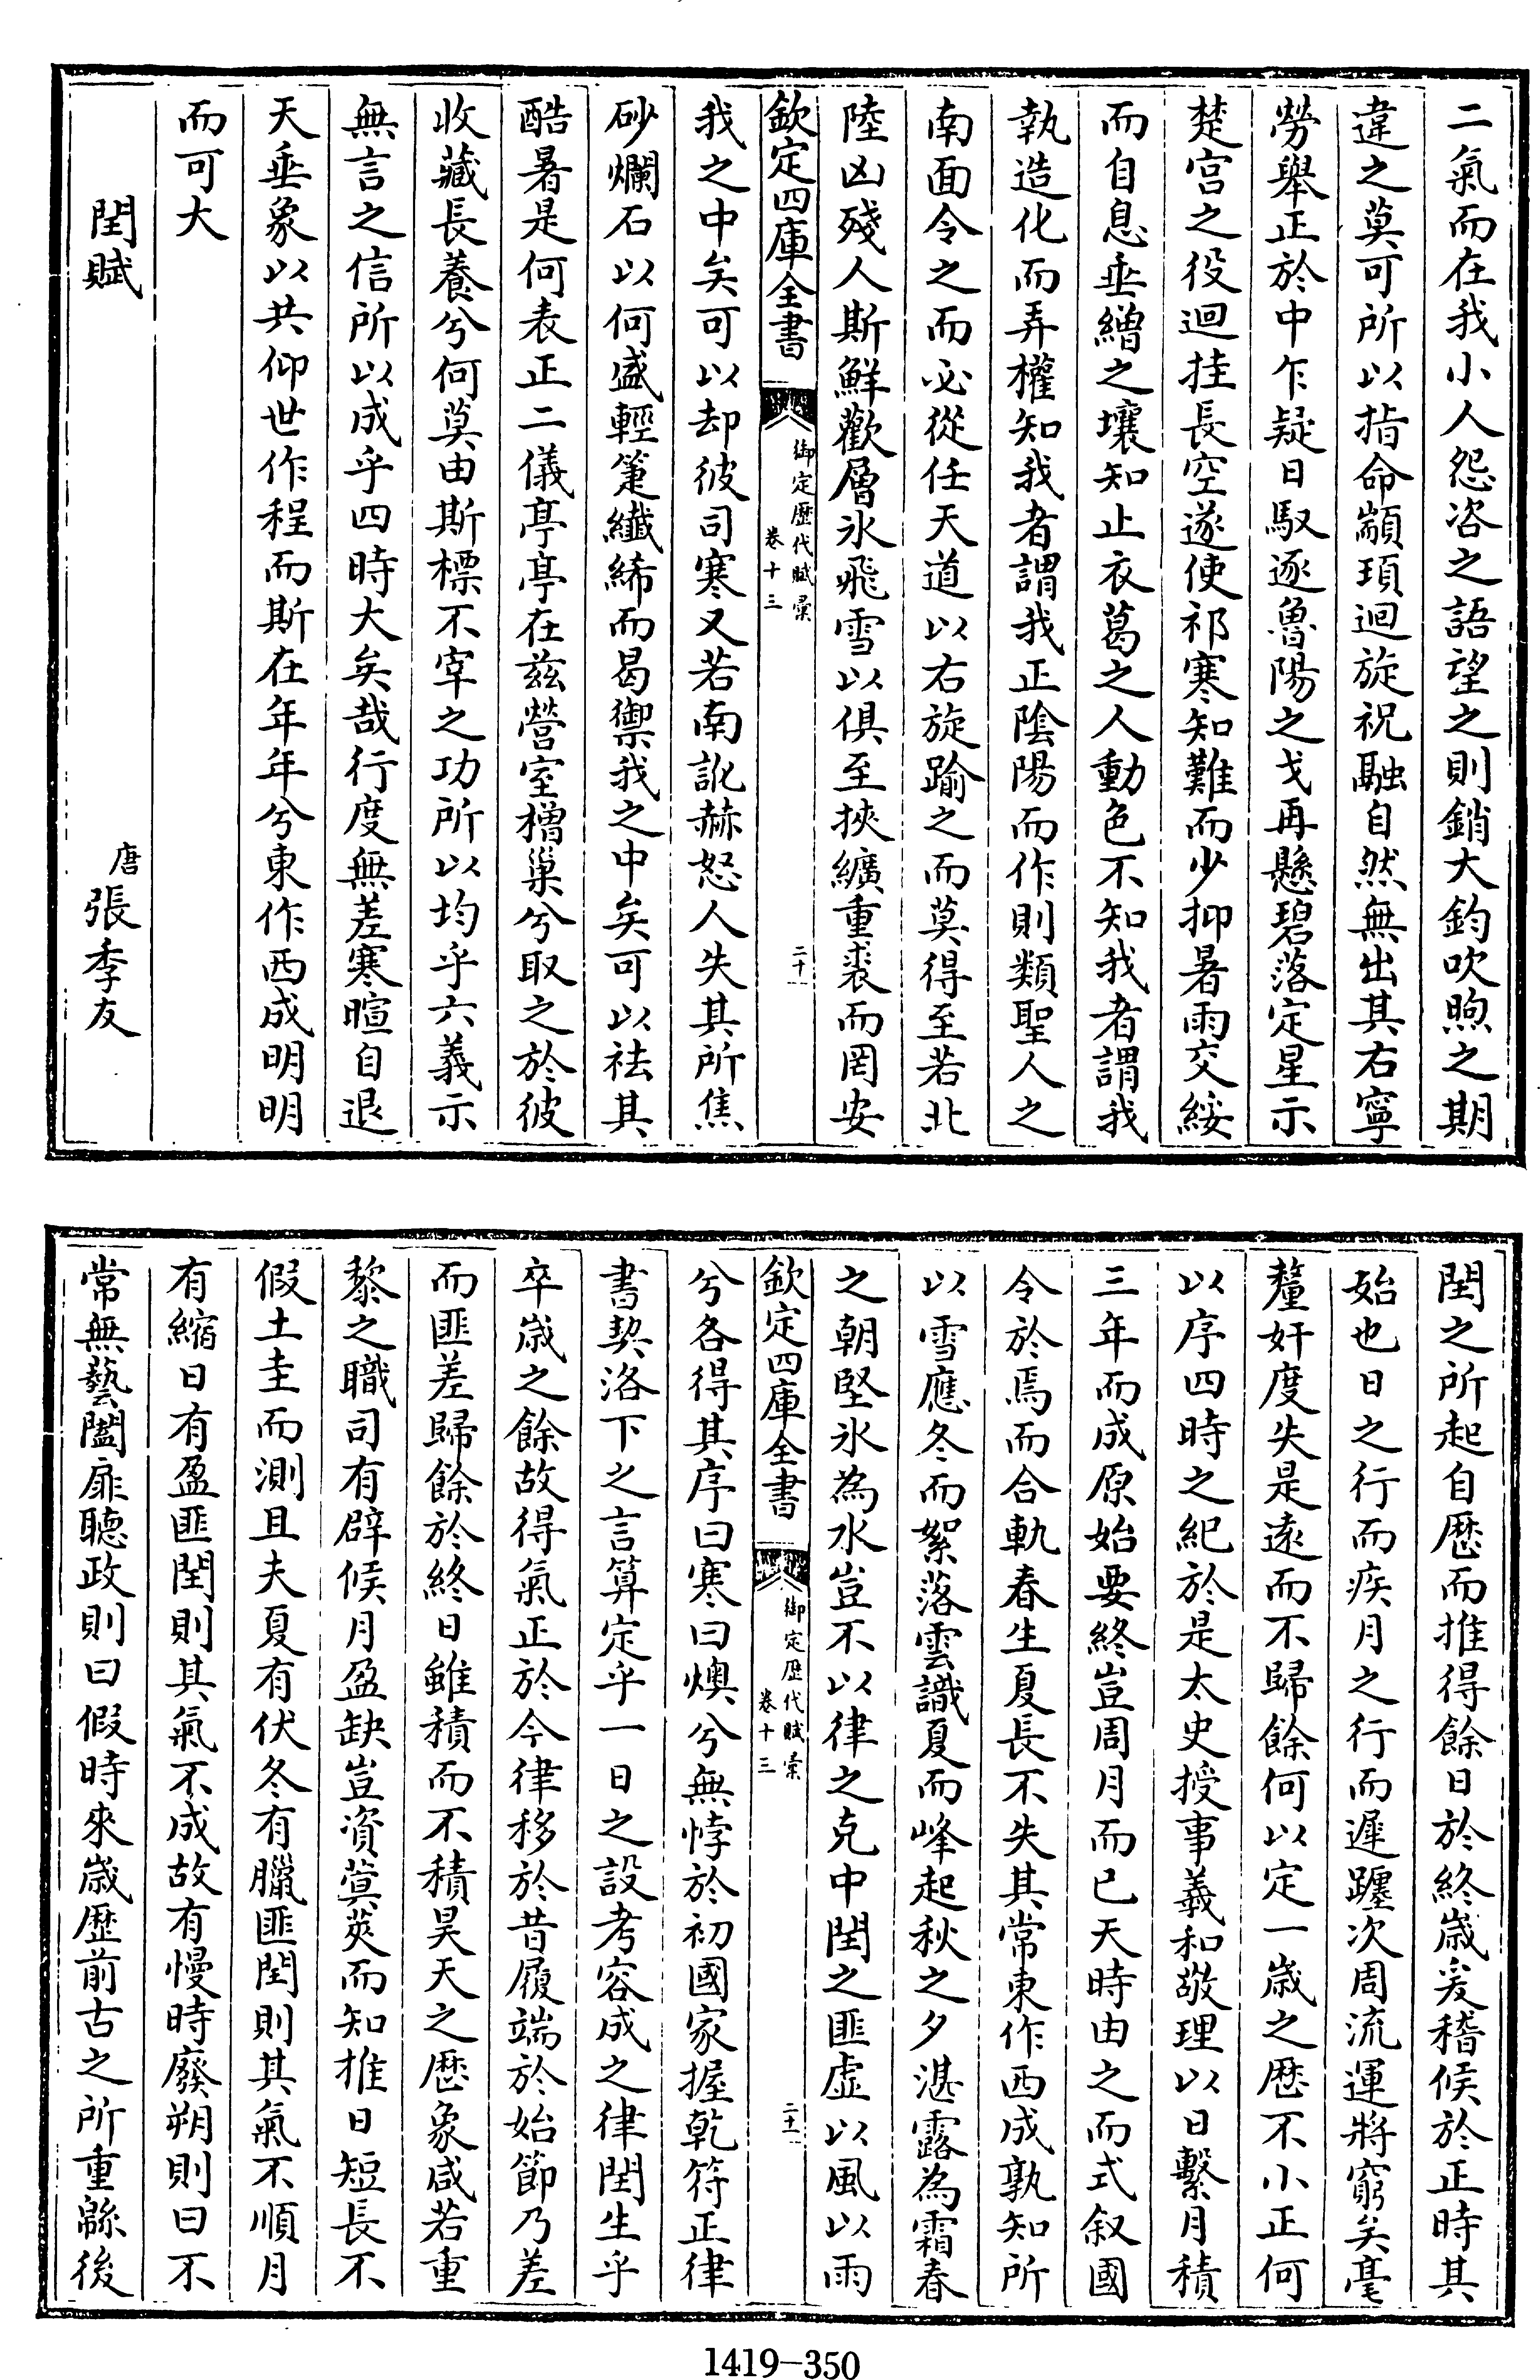 二氣而在我小人怨咨之語望之則銷大鈞吹煦之期
違之莫可所以指命顓頊迴旋祝融自然無出其右寧
勞舉正於中乍疑日馭逐魯陽之戈再懸碧落定星示
楚宮之役迴挂長空遂使祁寒知難而少抑暑雨交綏
而自息垂繒之壤知止衣葛之人動色不知我者謂我
執造化而弄權知我者謂我正陰陽而作則類聖人之
南面令之而必從任天道以右旋踰之而莫得至若北
陸凶殘人斯鮮歡層氷飛雪以俱至挾纊重裘而罔安
欽定四庫全書
御定歷代賦彙
卷十三
二十
我之中矣可以却彼司寒又若南訛赫怒人失其所焦
砂爛石以何盛輕箑纖絺而曷禦我之中矣可以祛其
酷暑是何表正二儀亭亭在兹營室橧巢兮取之於彼
收藏長養兮何莫由斯標不宰之功所以均乎六義示
無言之信所以成乎四時大矣哉行度無差寒暄自退
天垂象以共仰世作程而斯在年年兮東作西成明明
而可大
閏賦
唐張季友
閏之所起自歷而推得餘日於終歲爰稽候於正時其
始也日之行而疾月之行而遲躔次周流運將窮矣毫
釐奸度失是遠而不歸餘何以定一歲之歷不小正何
以序四時之紀於是太史授事羲和敬理以日繫月積
三年而成原始要終豈周月而已天時由之而式叙國
令於焉而合軌春生夏長不失其常東作西成孰知所
以雪應冬而絮落雲識夏而峰起秋之夕湛露為霜春
之朝堅氷為水豈不以律之克中閏之匪虛以風以雨
欽定四庫全書
御定歷代賦彙
卷十三
二十一
兮各得其序曰寒曰燠兮無悖於初國家握乾符正律
書契洛下之言算定乎一日之設考容成之律閏生乎
卒歲之餘故得氣正於今律移於昔履端於始節乃差
而匪差歸餘於終日雖積而不積昊天之歷象咸若重
黎之職司有辟候月盈缺豈資蓂莢而知推日短長不
假土圭而測且夫夏有伏冬有臘匪閏則其氣不順月
有縮日有盈匪閏則其氣不成故有慢時廢朔則曰不
常無藝闔扉聽政則曰假時來歲歷前古之所重緜後
1419-350